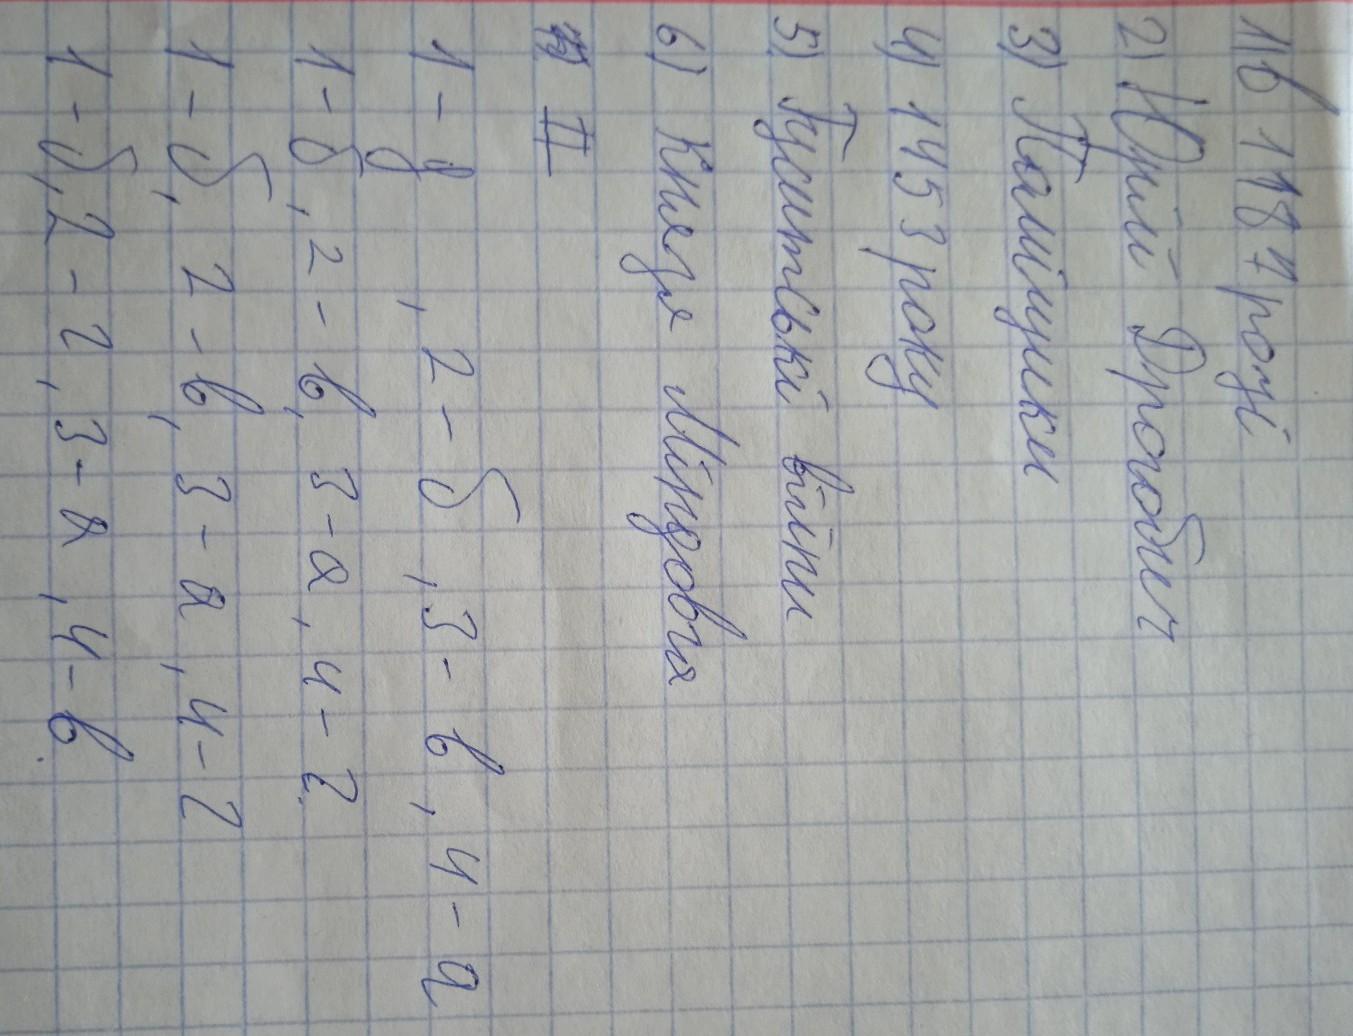 1) в 1187 році
2) Юрій Дрогобич
3) Паміпушки
4) 1453 року
5) Гуситські війни
6) Князя Міндовга
II
1 - д, 2 - б, 3 - в, 4 - а
1 - б, 2 - в, 3 - а, 4 - г
1 - б, 2 - в, 3 - а, 4 - г
1 - б, 2 - г, 3 - а, 4 - в.